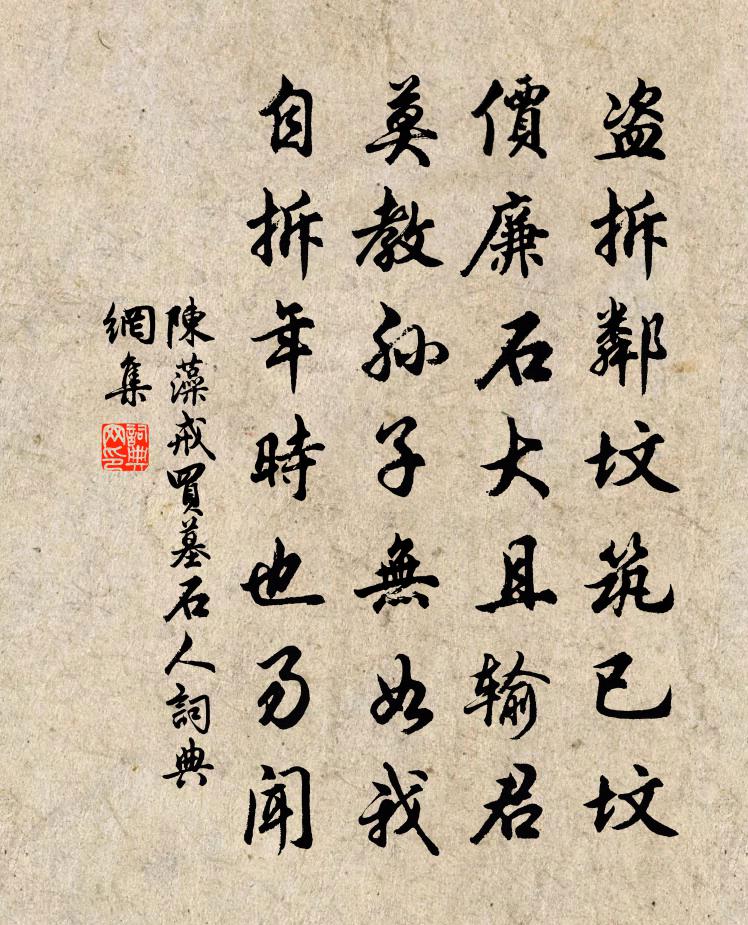 盗拆鄰坟筑已坟
價廉石大且输君
莫教孫子無如我
自拆年時也聞
陳藻戒買墓石人詞典
網集
詞典
网印